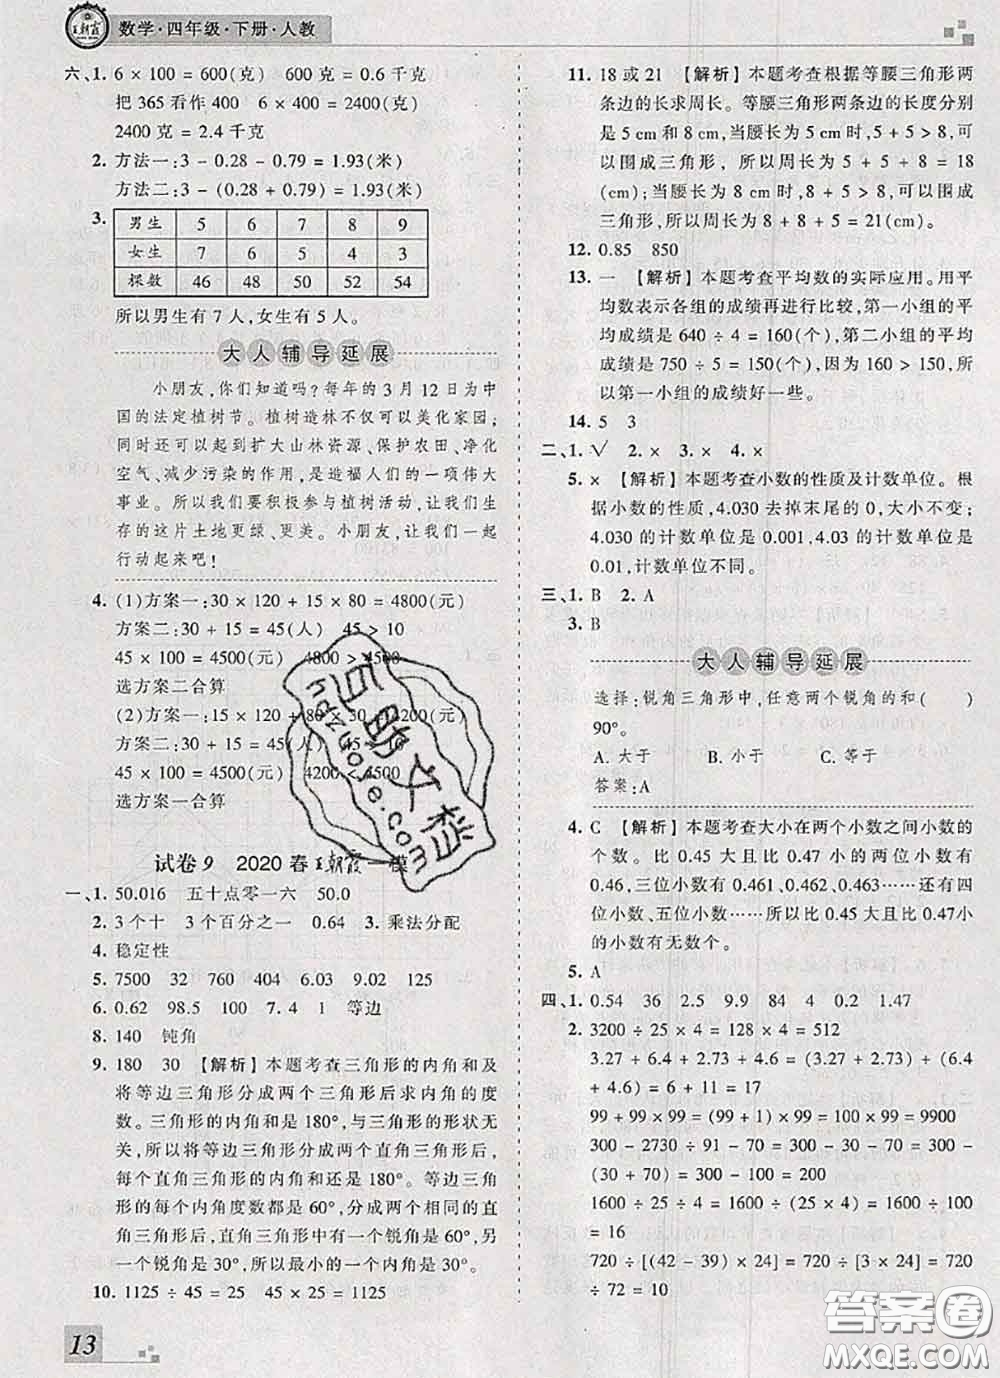 王朝霞
数学·四年级·下册·人教
六、1. 6 × 100 = 600(克)　600 克 = 0.6 千克
把 365 看作 400　6 × 400 = 2400(克)
2400 克 = 2.4 千克
2. 方法一:3 − 0.28 − 0.79 = 1.93(米)
方法二:3 − (0.28 + 0.79) = 1.93(米)
3.
男生 5 6 7 8 9
女生 7 6 5 4 3
棵数 46 48 50 52 54
所以男生有 7 人,女生有 5 人。
大人辅导延展
小朋友,你们知道吗?每年的 3 月 12 日为中
国的法定植树节。植树造林不仅可以美化家园;
同时还可以起到扩大山林资源、保护农田、净化
空气、减少污染的作用,是造福人们的一项伟大
事业。所以我们要积极参与植树活动,让我们生
存的这片土地更绿、更美。小朋友,让我们一起
行动起来吧!
4. (1)方案一:30 × 120 + 15 × 80 = 4800(元)
方案二:30 + 15 = 45(人)　45 > 10
45 × 100 = 4500(元)　4800 > 4500
选方案二合算
(2)方案一:15 × 120 + 80 × 30 = 4200(元)
方案二:30 + 15 = 45(人)　45 > 10
45 × 100 = 4500(元)　4200 < 4500
选方案一合算
试卷 9　2020 春王朝霞一模
一、1. 50.016　五十点零一六　50.0
2. 3 个十　3 个百分之一　0.64　3. 乘法分配
4. 稳定性
5. 7500　32　760　404　6.03　9.02　125
6. 0.62　98.5　100　7. 4　1　等边
8. 140　钝角
9. 180　30　【解析】本题考查三角形的内角和及
将等边三角形分成两个三角形后求内角的度
数。三角形的内角和是 180°,与三角形的形状无
关,所以将等边三角形分成两个三角形后,
每个三角形的内角和还是 180°。等边三角
形的每个内角度数都是 60°,分成两个相同的直
角三角形后,直角三角形中有一个锐角是 60°,另
外一个锐角是 30°,所以最小的锐角是 30°。
10. 1125 ÷ 45 = 25　45 × 25 = 1125
13
11. 18 或 21　【解析】本题考查根据等腰三角形两
条边的长求周长。等腰三角形两条边的长度分别
是 5 cm 和 8 cm,当腰长为 5 cm 时,5 + 5 > 8,可
以围成三角形,所以周长为 5 + 5 + 8 = 18
(cm);当腰长为 8 cm 时,8 + 5 > 8,可以围成
三角形,所以周长为 8 + 8 + 5 = 21(cm)。
12. 0.85　850
13. 一　【解析】本题考查平均数的实际应用。用平
均数表示各组的成绩再进行比较,第一小组的平
均成绩是 640 ÷ 4 = 160(个),第二小组的平均
成绩是 750 ÷ 5 = 150(个),因为 160 > 150,所
以第一小组的成绩好一些。
14. 5　3
二、1. √　2. ×　3. ×　4. ×
5. ×　【解析】本题考查小数的性质及计数单位。根
据小数的性质,4.030 去掉末尾的 0,大小不变;
4.030 的计数单位是 0.001,4.03 的计数单位是
0.01,计数单位不同。
三、1. B　2. A
3. B
大人辅导延展
选择:锐角三角形中,任意两个锐角的和(　　)
90°。
A. 大于　B. 小于　C. 等于
答案:A
4. C　【解析】本题考查大小在两个小数之间小数的
个数。比 0.45 大且比 0.47 小的两位小数有
0.46,三位小数有 0.461,0.462……还有四
位小数、五位小数……所以比 0.45 大且比 0.47小
的小数有无数个。
5. A
四、1. 0.54　36　2.5　9.9　84　4　0.2　1.47
2. 3200 ÷ 25 × 4 = 128 × 4 = 512
3.27 + 6.4 + 2.73 + 4.6 = (3.27 + 2.73) + (6.4
+ 4.6) = 6 + 11 = 17
99 + 99 × 99 = (99 + 1) × 99 = 100 × 99 = 9900
300 − 2730 ÷ 91 − 70 = 300 − 30 − 70 = 300 −
(30 + 70) = 300 − 100 = 200
1600 ÷ 25 ÷ 4 = 1600 ÷ (25 × 4) = 1600 ÷ 100
= 16
720 ÷ [(42 − 39) × 24] = 720 ÷ [3 × 24] =
720 ÷ 72 = 10
百助文档
hdzuoye.com
答案圈
MXQE.COM